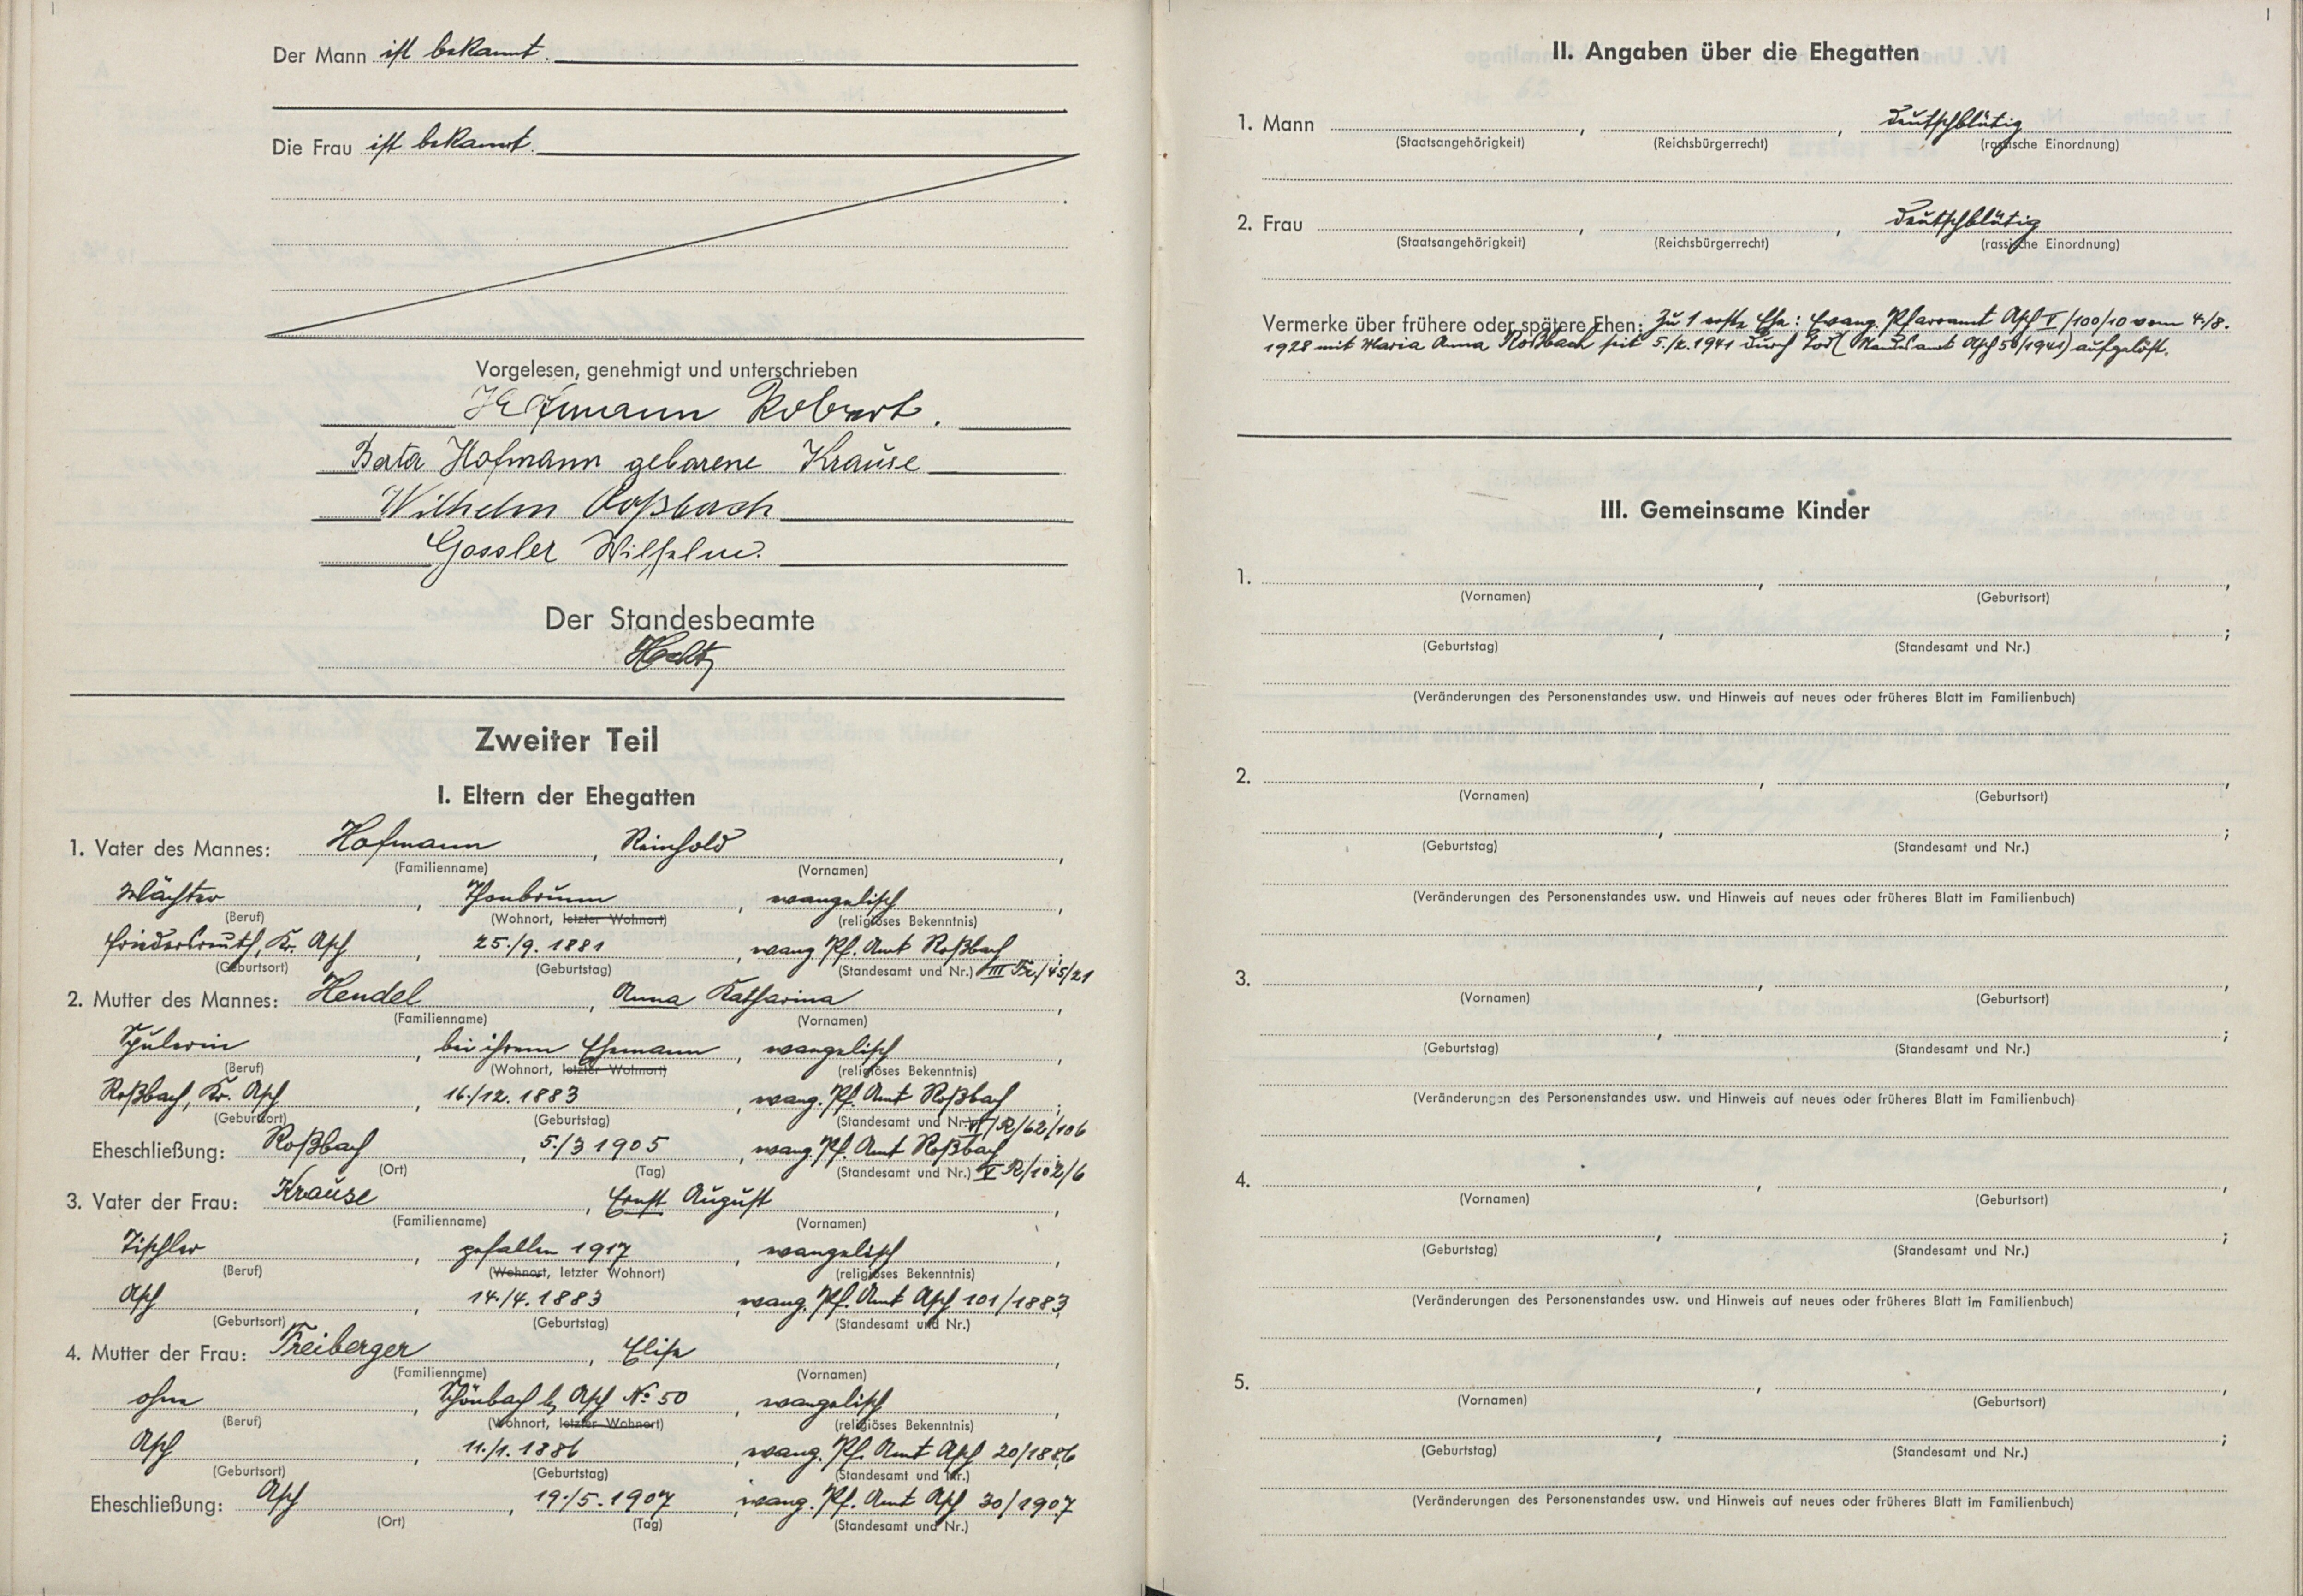 Der Mann ist bekannt.
Die Frau ist bekannt.
Vorgelesen, genehmigt und unterschrieben
Hofmann Robert.
Berta Hofmann geborene Krause
Wilhelm Roßbach
Gossler Wilhelm.
Der Standesbeamte
Zweiter Teil
I. Eltern der Ehegatten
1. Vater des Mannes: Hofmann, Reinhold,
(Familienname) (Vornamen)
Wächter, Thonbrunn, evangelisch,
(Beruf) (Wohnort, letzter Wohnort) (religiöses Bekenntnis)
Friedersreuth, Kr. Asch, 25./9. 1881, evang. Pf. Amt Roßbach;
(Geburtsort) (Geburtstag) (Standesamt und Nr.) III Fr./45/21
2. Mutter des Mannes: Hendel, Anna Katharina,
(Familienname) (Vornamen)
Spulerin, bei ihrem Ehemann, evangelisch,
(Beruf) (Wohnort, letzter Wohnort) (religiöses Bekenntnis)
Roßbach, Kr. Asch, 16./12. 1883, evang. Pf. Amt Roßbach;
(Geburtsort) (Geburtstag) (Standesamt und Nr.) VI/R/62/106
Eheschließung: Roßbach, 5./3 1905, evang. Pf. Amt Roßbach;
(Ort) (Tag) (Standesamt und Nr.) V R/102/6
3. Vater der Frau: Krause, Ernst August,
(Familienname) (Vornamen)
Tischler, gefallen 1917, evangelisch,
(Beruf) (Wohnort, letzter Wohnort) (religiöses Bekenntnis)
Asch, 14./4. 1883, evang. Pf. Amt Asch 101/1883;
(Geburtsort) (Geburtstag) (Standesamt und Nr.)
4. Mutter der Frau: Freiberger, Elise,
(Familienname) (Vornamen)
ohne, Schönbach b. Asch No. 50, evangelisch,
(Beruf) (Wohnort, letzter Wohnort) (religiöses Bekenntnis)
Asch, 11./1. 1886, evang. Pf. Amt Asch 20/1886;
(Geburtsort) (Geburtstag) (Standesamt und Nr.)
Eheschließung: Asch, 19./5. 1907, evang. Pf. Amt Asch 30/1907.
(Ort) (Tag) (Standesamt und Nr.)
II. Angaben über die Ehegatten
1. Mann , , deutschblütig
(Staatsangehörigkeit) (Reichsbürgerrecht) (rassische Einordnung)
2. Frau , , deutschblütig
(Staatsangehörigkeit) (Reichsbürgerrecht) (rassische Einordnung)
Vermerke über frühere oder spätere Ehen: Zu 1 erste Ehe: Evang. Pfarramt Asch V/100/10 vom 4./8.
1928 mit Maria Anna Roßbach seit 5./2. 1941 durch Tod (Standesamt Asch 50/1941) aufgelöst.
III. Gemeinsame Kinder
1. , ,
(Vornamen) (Geburtsort)
, ;
(Geburtstag) (Standesamt und Nr.)
(Veränderungen des Personenstandes usw. und Hinweis auf neues oder früheres Blatt im Familienbuch)
2. , ,
(Vornamen) (Geburtsort)
, ;
(Geburtstag) (Standesamt und Nr.)
(Veränderungen des Personenstandes usw. und Hinweis auf neues oder früheres Blatt im Familienbuch)
3. , ,
(Vornamen) (Geburtsort)
, ;
(Geburtstag) (Standesamt und Nr.)
(Veränderungen des Personenstandes usw. und Hinweis auf neues oder früheres Blatt im Familienbuch)
4. , ,
(Vornamen) (Geburtsort)
, ;
(Geburtstag) (Standesamt und Nr.)
(Veränderungen des Personenstandes usw. und Hinweis auf neues oder früheres Blatt im Familienbuch)
5. , ,
(Vornamen) (Geburtsort)
, ;
(Geburtstag) (Standesamt und Nr.)
(Veränderungen des Personenstandes usw. und Hinweis auf neues oder früheres Blatt im Familienbuch)